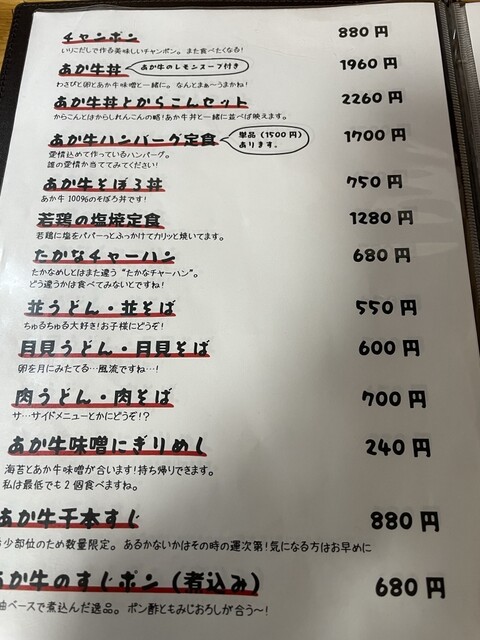 チャンポン 880円
いりこだしで作る美味しいチャンポン。また食べたくなる!
あか牛丼 あか牛のレモンスープ付き 1960円
わさびと卵とあか牛味噌と一緒に。なんとまぁ〜うまかね!
あか牛丼とからこんセット 2260円
からこんとはからしれんこんの略!あか牛丼と一緒に並べば映えます。
あか牛ハンバーグ定食 単品(1500円)あります。 1700円
愛情込めて作っているハンバーグ。
誰の愛情か当ててみてください!
あか牛そぼろ丼 750円
あか牛100%のそぼろ丼です!
若鶏の塩焼定食 1280円
若鶏に塩をパパーっとふっかけてカリッと焼いてます。
たかなチャーハン 680円
たかなめしとはまた違う“たかなチャーハン”。
どう違うかは食べてみないとですね!
並うどん・並そば 550円
ちゅるちゅる大好き!お子様にどうぞ!
月見うどん・月見そば 600円
卵を月にみたてる…風流ですね…!
肉うどん・肉そば 700円
サ…サイドメニューとかにどうぞ!?
あか牛味噌にぎりめし 240円
海苔とあか牛味噌が合います!持ち帰りできます。
私は最低でも2個食べますね。
あか牛千本すじ 880円
少部位のため数量限定。あるかないかはその時の運次第!気になる方はお早めに
あか牛のすじポン(煮込み) 680円
油ベースで煮込んだ逸品。ポン酢ともみじおろしが合う〜!